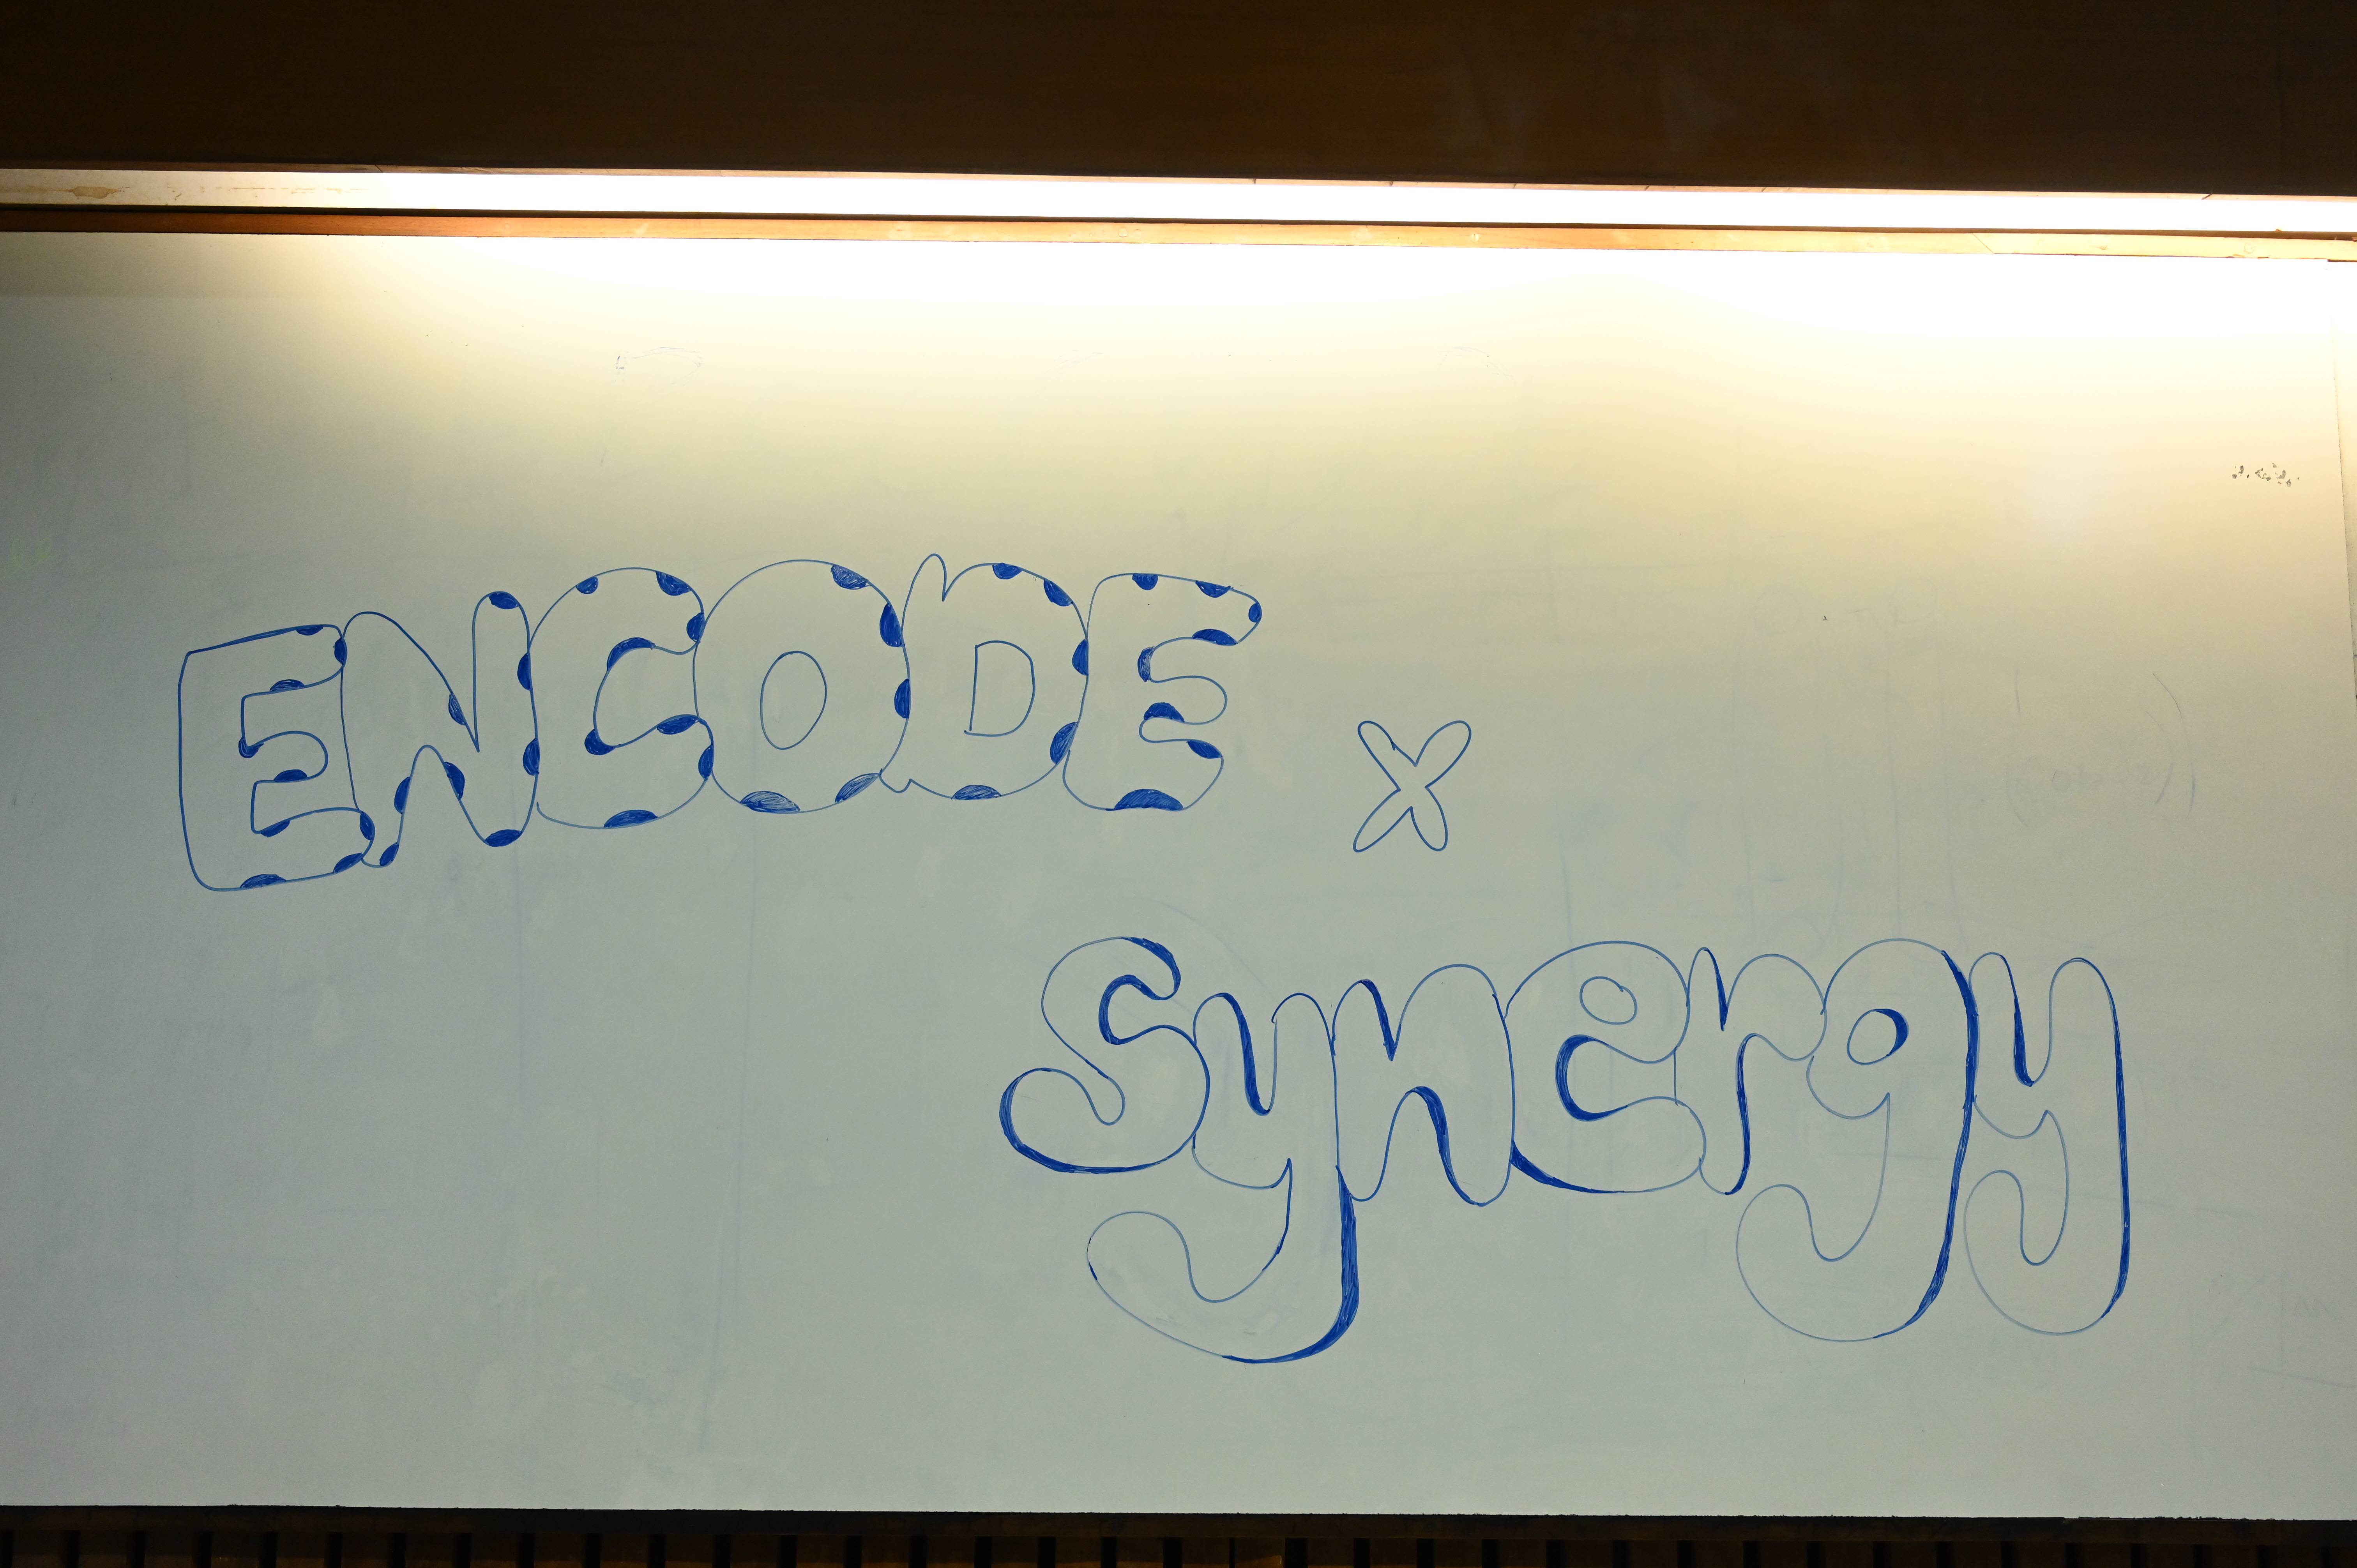 ENCODE x
Synergy